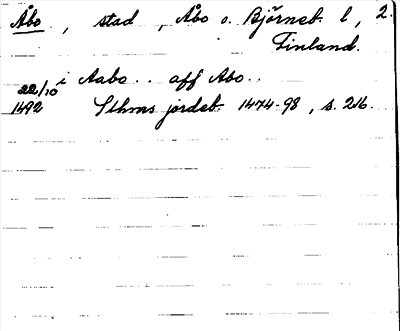 Åbo, stad, Åbo o. Björneb. l, 2.
Finland.
22/10 i Aabo.. aff Abo..
1492 Sthms jordeb. 1474-98, s. 216.